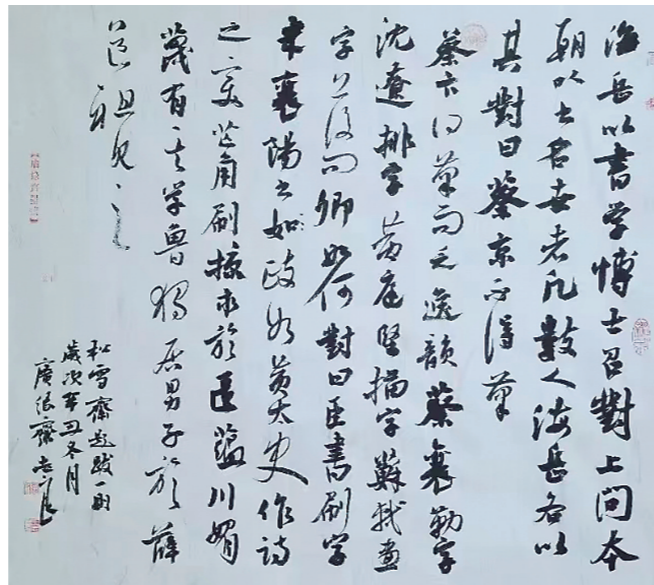 海岳以書学博士召對上问本
朝以书名世者凡數人海岳各以
其對曰蔡京不得筆
蔡卞得筆而乏逸韻蔡襄勒字
沈遼排字黄庭堅描字蘇軾畫
字上復问卿如何對曰臣書刷字
米襄陽书如政如黄太史作詩
之变芒角刷掠求於匱韞川媚
蔑有矣学魯獨居男子於薛
道祖見之
松雪齋題跋一則
歲次辛丑冬月
齋